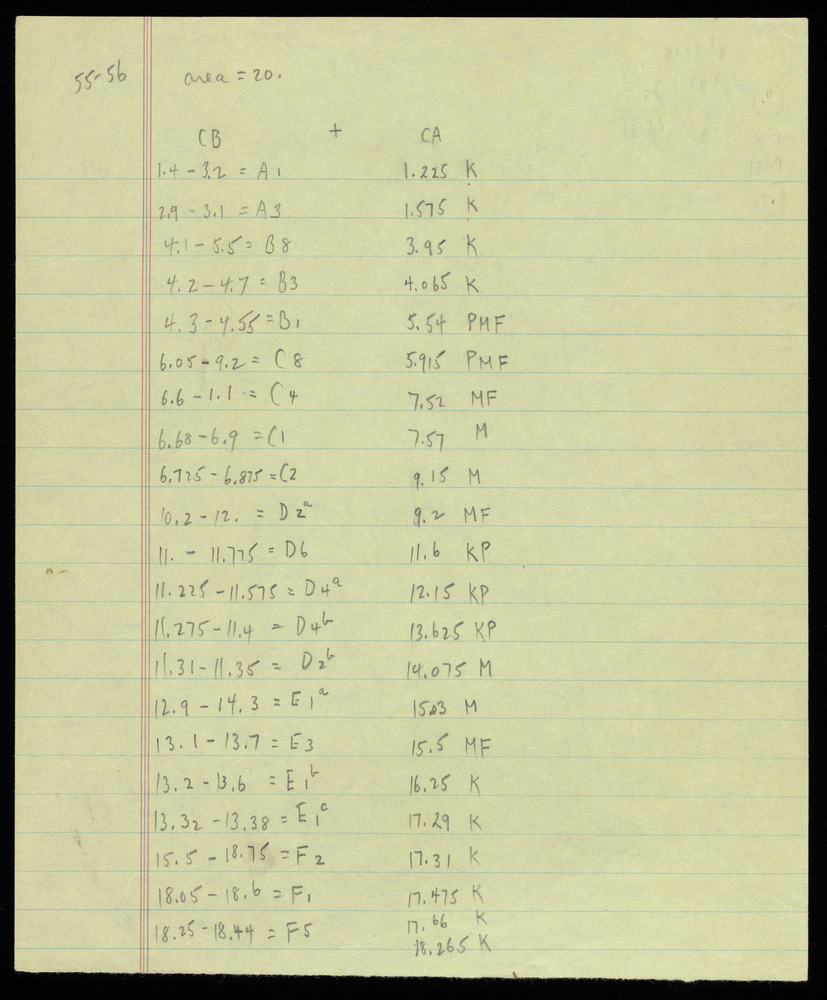 55-56 area = 20.
CB + CA
1.4 - 3.2 = A1 1.225 K
2.9 - 3.1 = A3 1.575 K
4.1 - 5.5 = B8 3.95 K
4.2 - 4.7 = B3 4.065 K
4.3 - 4.55 = B1 5.54 PMF
6.05 - 9.2 = C8 5.915 PMF
6.6 - 1.1 = C4 7.52 MF
6.68 - 6.9 = C1 7.57 M
6.725 - 6.875 = C2 9.15 M
10.2 - 12. = D2a 9.2 MF
11. - 11.775 = D6 11.6 KP
11.225 - 11.575 = D4a 12.15 KP
11.275 - 11.4 = D4b 13.625 KP
11.31 - 11.35 = D2b 14.075 M
12.9 - 14.3 = E1a 15.03 M
13.1 - 13.7 = E3 15.5 MF
13.2 - 13.6 = E1b 16.25 K
13.32 - 13.38 = E1c 17.29 K
15.5 - 18.75 = F2 17.31 K
18.05 - 18.6 = F1 17.475 K
18.25 - 18.44 = F5 17.66 K
18.265 K